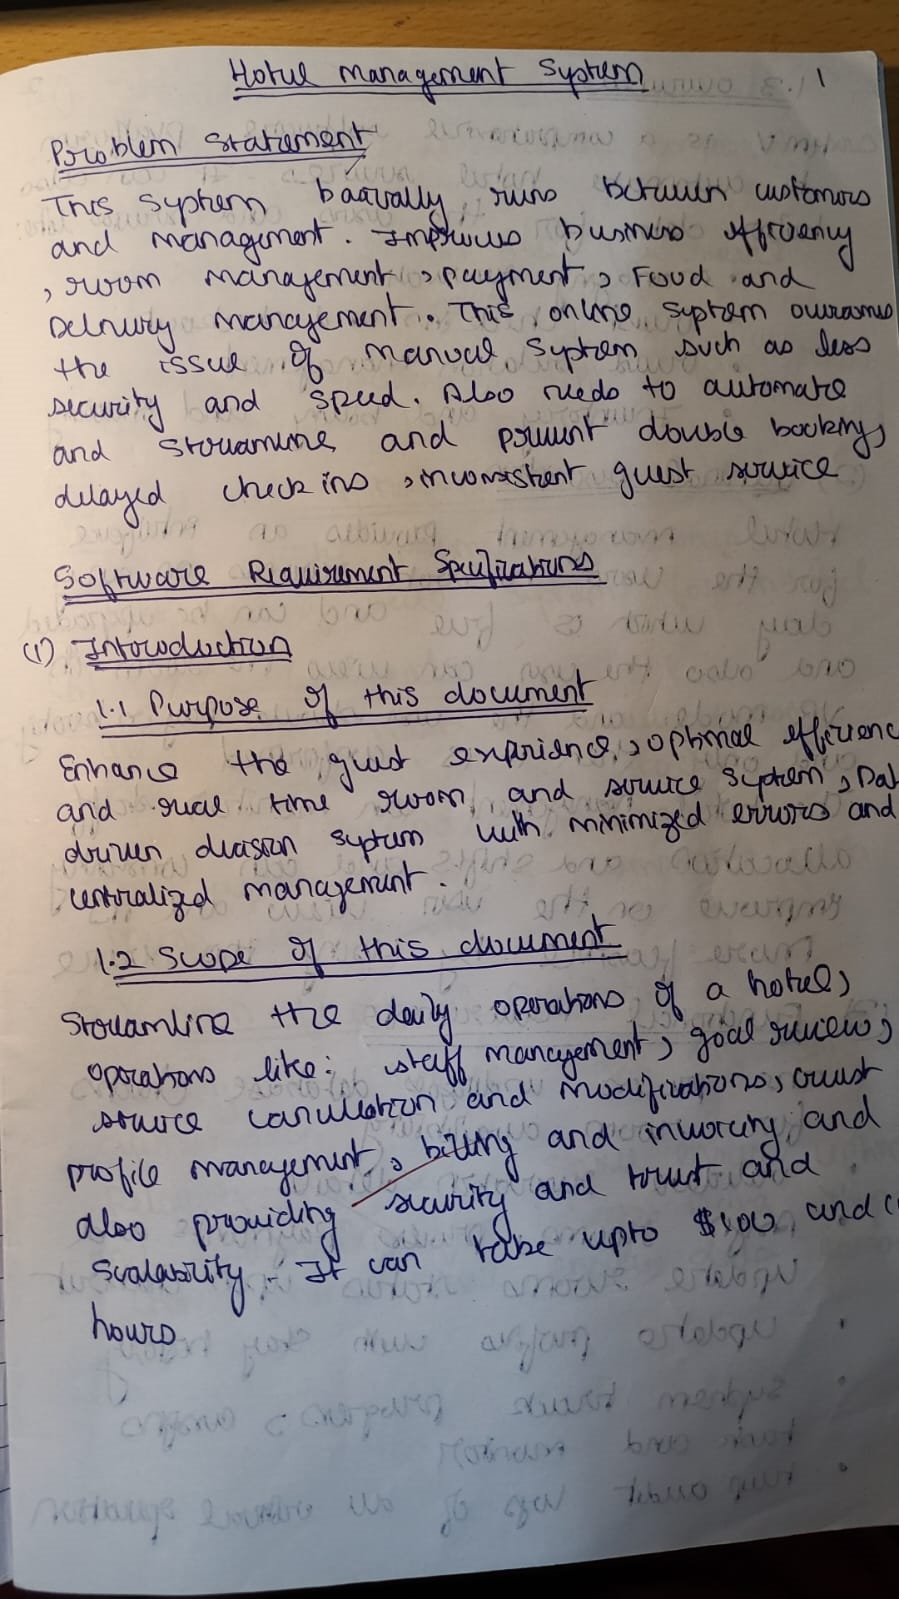 Hotel Management System 1
Problem Statement
This system basically, runs between customers
and management. Improves business efficiency
, room management, payment, Food and
Delivery management. This online system overcomes
the issue of manual system such as less
security and speed. Also needs to automate
and streamline and prevent double booking,
delayed check ins, inconsistent guest service
Software Requirement Specifications
(1) Introduction
1.1 Purpose of this document
Enhance the guest experience, optimal efficienc
and real time room and service system, Dat
driven decision system with minimized errors and
centralized management.
1.2 Scope of this document
Streamline the daily operations of a hotel,
operations like: staff management, goal review,
service cancellation and modifications, Guest
profile management, billing and invoicing and
also providing security and trust and
Scalability. It can take upto and
hours